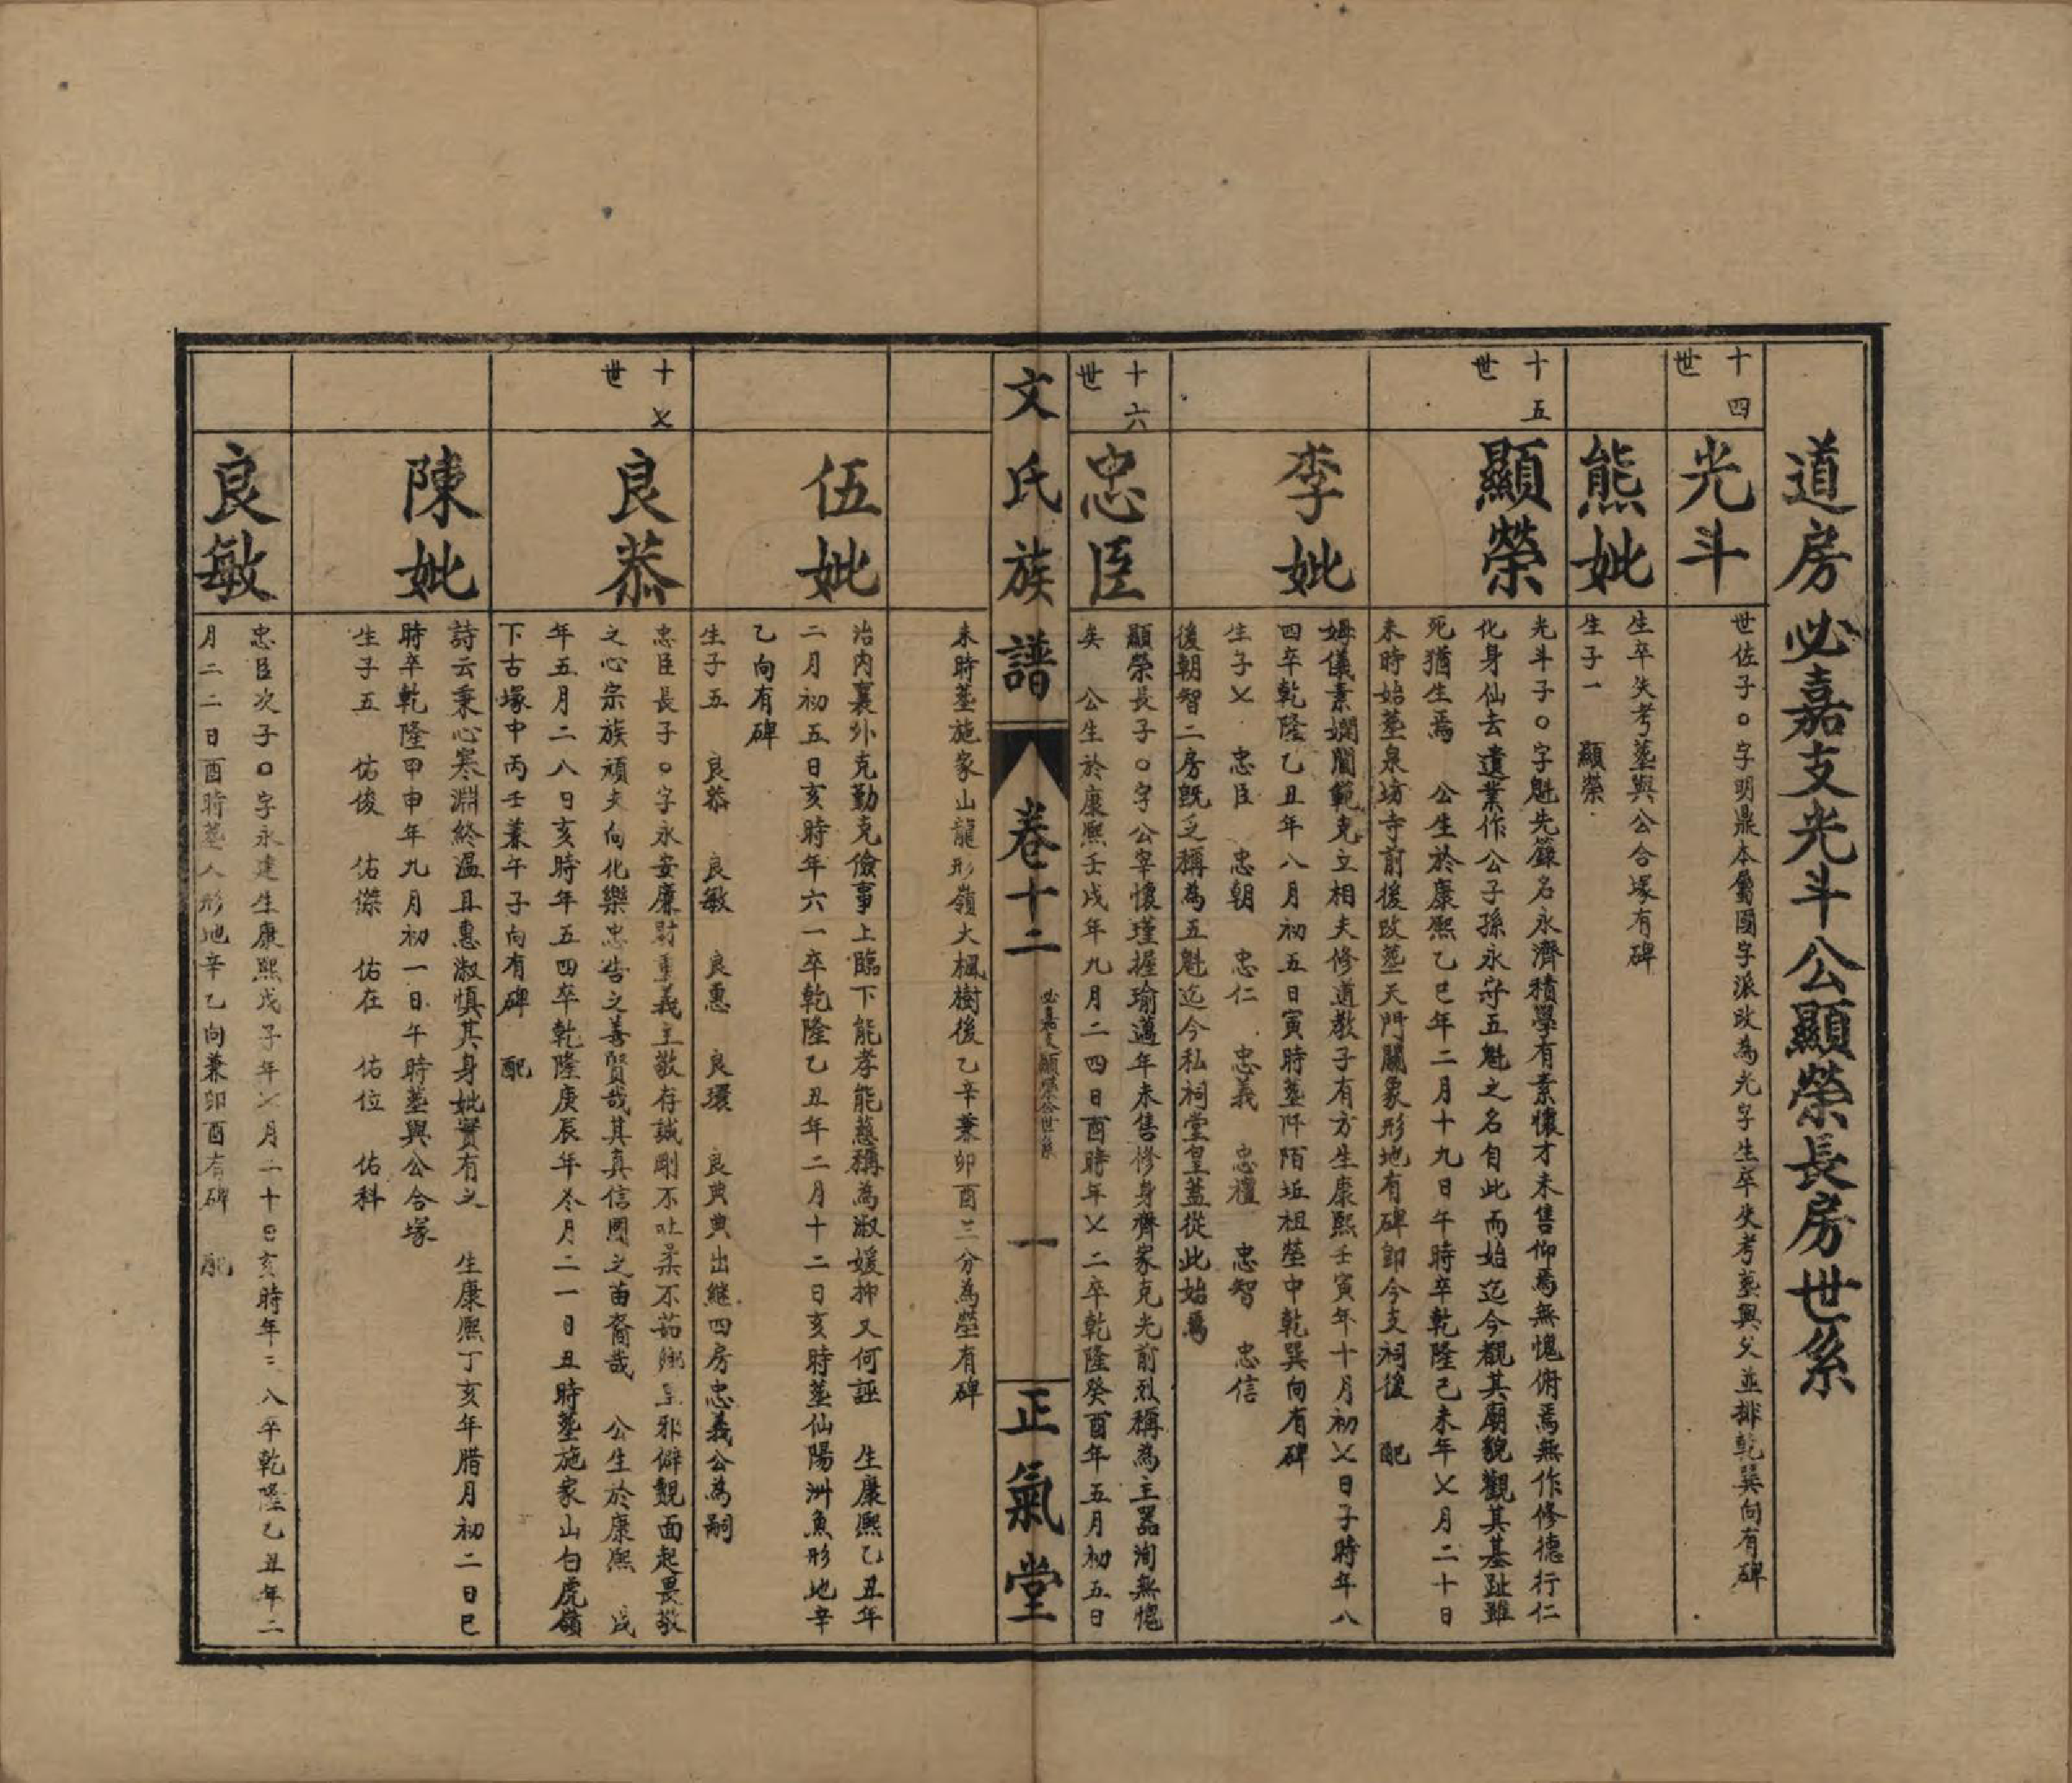 道房必嘉支光斗公顯榮長房世系
十四世
光斗
世佐子○字明鼎本屬國字派改為光字生卒失考塟與父並排乾巽向有碑
熊妣
生卒失考塟與公合塚有碑
生子一 顯榮
十五世
顯榮
光斗子○字魁先籙名永濟積學有素懷才未售仰焉無愧俯焉無作修德行仁
化身仙去遺業作公子孫永守五魁之名自此而始迄今覩其廟貌觀其基趾雖
死猶生焉 公生於康熙乙巳年二月十九日午時卒乾隆己未年㐅月二十日
未時始塟泉坊寺前後改塟天門關象形地有碑卽今支祠後 配
李妣
姆儀素嫻閫範克立相夫修道教子有方生康熙壬寅年十月初㐅日子時年八
四卒乾隆乙丑年八月初五日寅時塟阡陌坵祖塋中乾巽向有碑
生子㐅 忠臣 忠朝 忠仁 忠義 忠禮 忠智 忠信
後朝智二房旣乏稱為五魁迄今私祠堂皇蓋從此始焉
十六世
忠臣
顯榮長子○字公宰懷瑾握瑜邁年未售修身齊家克光前烈稱為主器洵無愧
矣 公生於康熙壬戌年九月二四日酉時年㐅二卒乾隆癸酉年五月初五日
文氏族譜 卷十二 必嘉支顯榮公世系 一 正氣堂
未時塟施家山龍形嶺大楓樹後乙辛兼卯酉三分為塋有碑
伍妣
治內襄外克勤克儉事上臨下能孝能慈稱為淑媛抑又何誣 生康熙乙丑年
二月初五日亥時年六一卒乾隆乙丑年二月十二日亥時塟仙陽洲魚形地辛
乙向有碑
生子五 良恭 良敏 良惠 良環 良典典出継四房忠義公為嗣
十㐅世
良恭
忠臣長子○字永安廉財重義主敬存誠剛不吐柔不茹鄉里邪僻覩面起畏敬
之心宗族頑夫向化樂忠告之善賢哉其真信國之苗裔哉 公生於康熙 戊
年五月二八日亥時年五四卒乾隆庚辰年冬月二一日丑時塟施家山白虎嶺
下古塚中丙壬兼午子向有碑 配
陳妣
詩云秉心寒淵終溫且惠淑慎其身妣實有之 生康熙丁亥年腊月初二日巳
時卒乾隆甲申年九月初一日午時塟與公合塚
生子五 佑俊 佑傑 佑在 佑位 佑科
良敏
忠臣次子○字永建生康熙戊子年㐅月二十日亥時年三八卒乾隆乙丑年二
月二二日酉時塟人形地辛乙向兼卯酉有碑 配